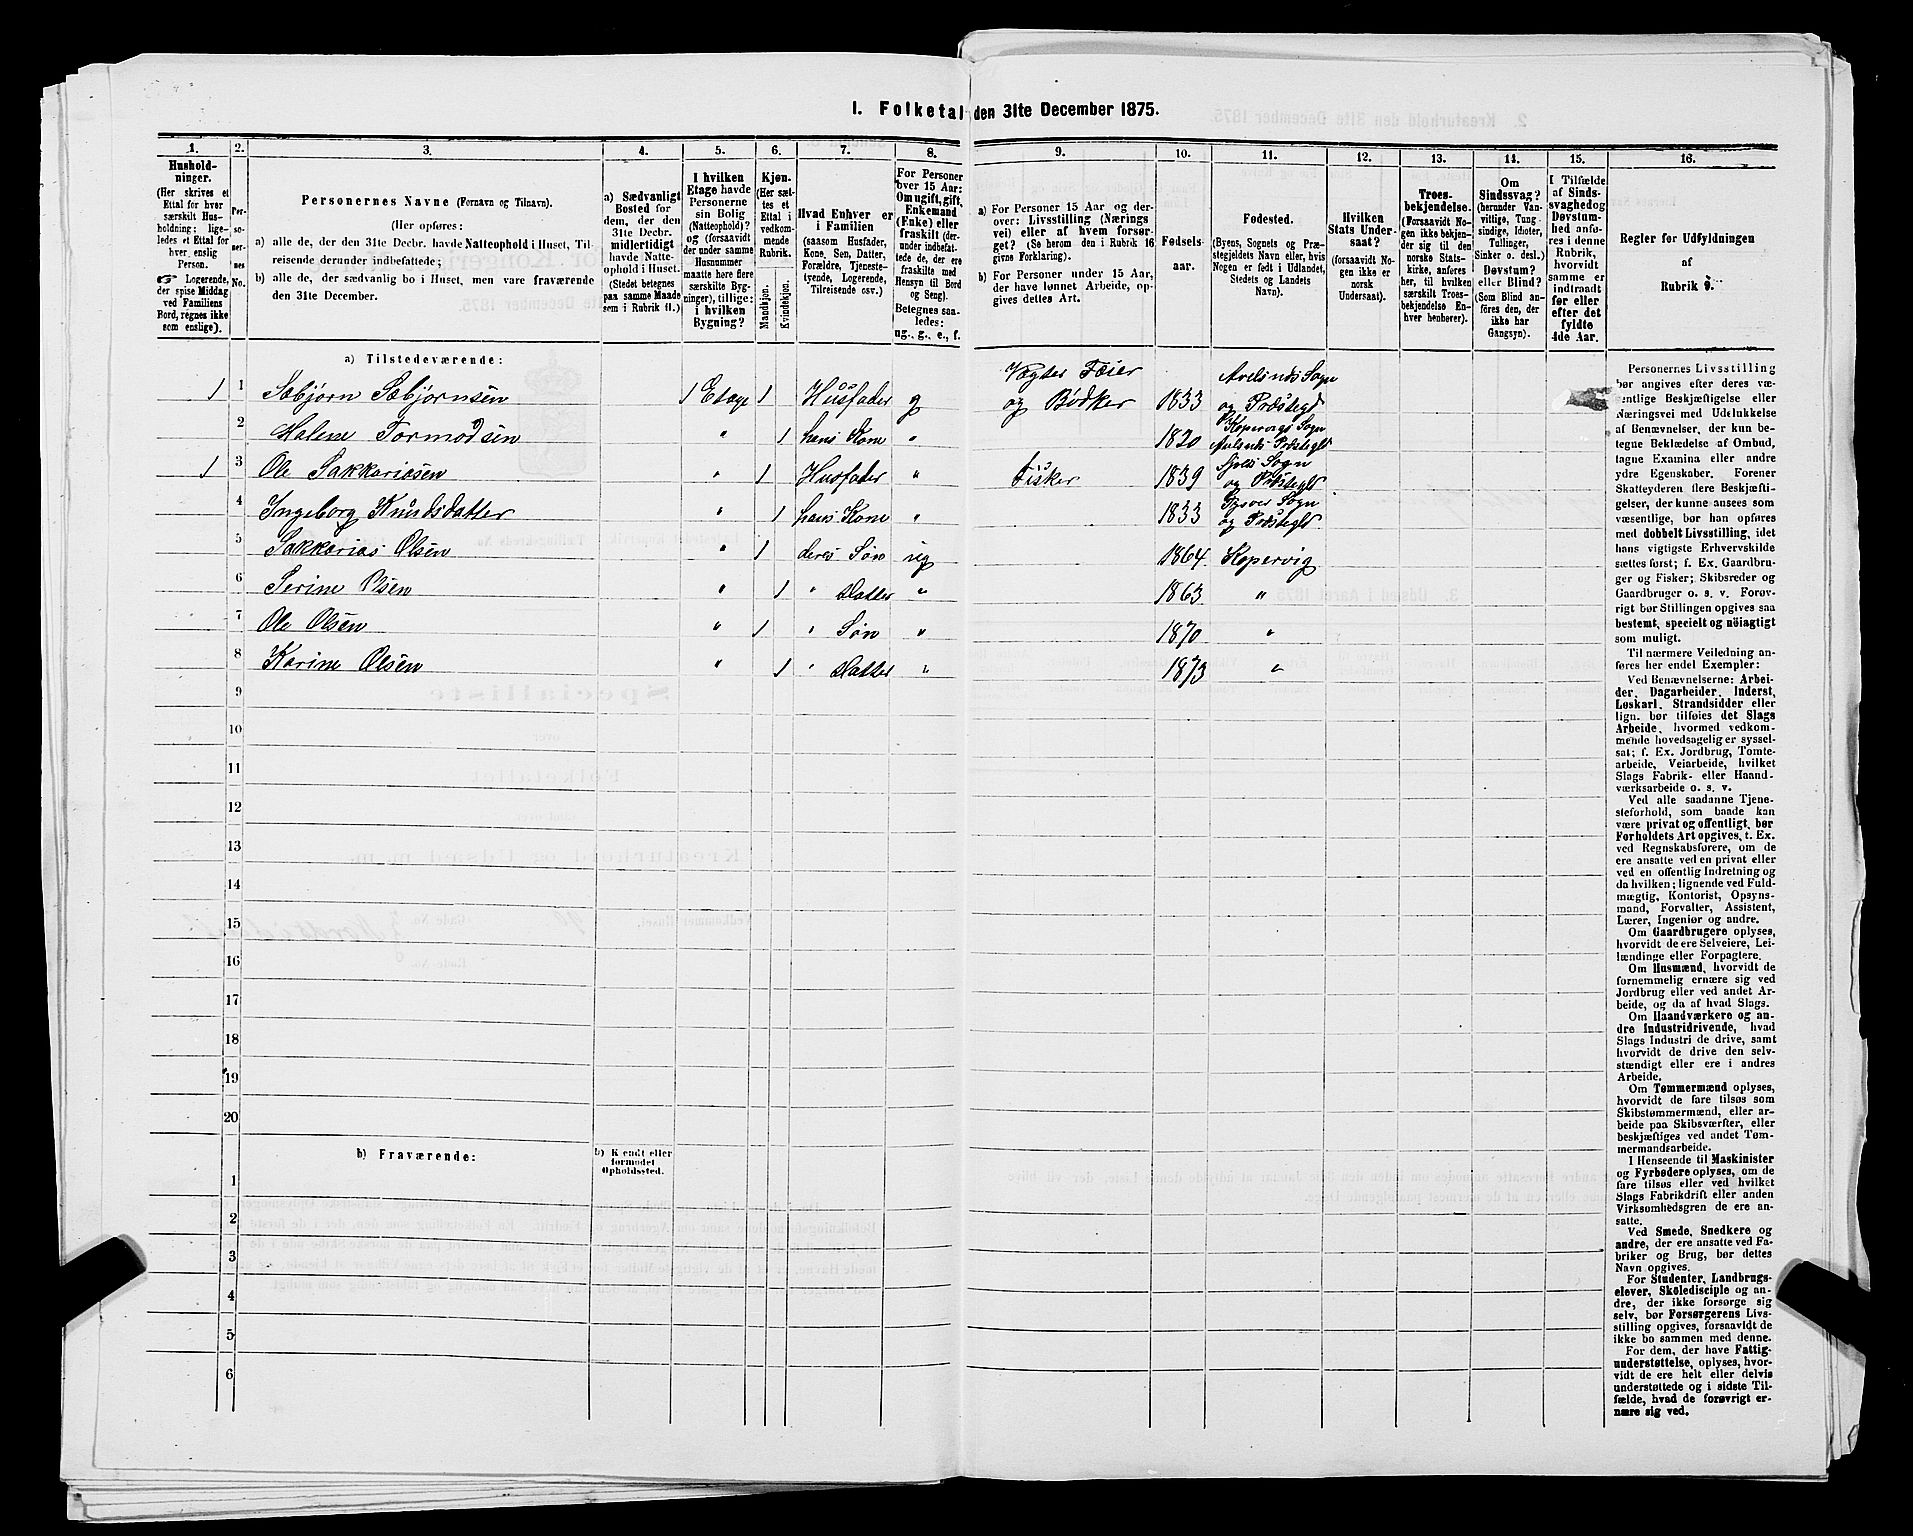 I. Folketal den 31te December 1875.
1. 2. 3. 4. 5. 6. 7. 8. 9. 10. 11. 12. 13. 14. 15. 16.
Hushold-
ninger.
(Her skrives et
Ettal for hver
særskilt Hus-
holdning; lige-
ledes et Ettal for
hver enslig
Person.
☞ Logerende,
der spise Middag
ved Familiens
Bord, regnes ikke
som enslige).
Per-
so-
ner-
nes
No.
Personernes Navne (Fornavn og Tilnavn).
(Her opføres:
a) alle de, der den 31te Decbr. havde Natteophold i Huset, Til-
reisende derunder indbefattede;
b) alle de, der sædvanlig bo i Huset, men vare fraværende
den 31te December.
a) Sædvanligt
Bosted for
dem, der den
31te Decbr.
midlertidigt
havde Natte-
ophold i Huset.
(Stedet betegnes
paa samme Maade
som i Rubrik 11.)
I hvilken
Etage havde
Personerne
sin Bolig
(Natteophold)?
og (forsaavidt
der under samme
Husnummer
maatte høre flere
særskilte Byg-
ninger), tillige:
i hvilken
Bygning?
Kjøn.
(Her sæt-
tes et
Ettal i
vedkom-
mende
Rubrik.
Mandkjøn.
Kvindekjøn.
Hvad Enhver er
i Familien
(saasom Husfader,
Kone, Søn, Datter,
Forældre, Tjeneste-
tyende, Logerende,
Tilreisende osv.)
For Personer
over 15 Aar:
Om ugift, gift,
Enkemand
(Enke) eller
fraskilt (der-
under indbefat-
tede de, der ere
fraskilte med
Hensyn til Bord
og Seng).
Betegnes saa-
ledes:
ug., g., e., f.
a) For Personer 15 Aar og der-
over: Livsstilling (Nærings
vei) eller af hvem forsør-
get? (Se herom den i Rubrik 16
givne Forklaring).
b) For Personer under 15 Aar,
der have lønnet Arbeide, op-
gives dettes Art.
Fødsels-
aar.
Fødested.
(Byens, Sognets og Præ-
stegjeldets Navn eller, hvis
Nogen er født i Udlandet,
Stedets og Landets
Navn).
Hvilken
Stats Under-
saat?
(forsaavidt No-
gen ikke er
norsk
Undersaat).
Troes-
bekjendelse.
(Forsaavidt No-
gen ikke bekjen-
der sig til den
norske Stats-
kirke, anføres
her, til hvilken
særskilt Troes-
bekjendelse En-
hver henhører).
Om
Sindssvag?
(herunder Van-
vittige, Tung
sindige, Idioter,
Tullinger,
Sinker o. desl.)
Døvstum?
eller Blind?
(Som Blind an-
føres den, der
ikke har
Gangsyn).
I Tilfælde
af Sinds-
svaghed og
Døvstum-
hed anfø-
res i denne
Rubrik,
hvorvidt
samme er
indtraadt
før eller
efter det
fyldte
4de Aar.
Regler før Udfyldningen
af
Rubrik 9.
a) Tilstedeværende:
Vægter Feier Avelsnds Sogn
1 1 Sæbjørn Sæbjørnsen 1 Etage 1 Husfader g og Bødker 1833 og Præstegd
2 Malene Tormodsen " 1 hans Kone " 1820 Kopervigs Sogn
Aulsnds Præstegld
1 3 Ole Sakkariasen " 1 Husfader " Fisker 1839 Sogn
og Præstegld
4 Ingeborg Knudsdatter " 1 hans Kone " 1833 Tysvær Sogn
og Præstegld
5 Sakkarias Olsen " 1 deres Søn ug 1864 Kopervig
6 Serine Olsen " 1 " Datter " 1863 "
7 Ole Olsen " 1 " Søn " 1870 "
8 Karine Olsen " 1 " Datter " 1873 "
9
10
11
12
13
14
15
16
17
18
19
20
b) Fraværende:
b) Kjendt eller
formodet
Opholdssted.
1
2
3
4
5
6
Personernes Livsstilling
bør angives efter deres væ-
sentlige Beskjæftigelse eller
Næringsvei med Udelukkelse
af Benævnelser, der kun be-
tegne Beklædelse af Ombud,
tagne Examina eller andre
ydre Egenskaber. Forener
Skatteyderen flere Beskjæfti-
gelser, der kunne ansees som
væsentlige, bør han opføres
med dobbelt Livsstilling, idet
hans vigtigste Erhvervskilde
sættes først; f. Ex. Gaardbru-
ger og Fisker; Skibsreder og
Gaardbruger o. s. v. Forøv-
rigt bør Stillingen opgives saa
bestemt, specielt og nøiagtigt
som muligt.
Til nærmere Veiledning an-
føres her endel Exempler:
Ved Benævnelserne: Arbei-
der, Dagarbeider, Inderst,
Løskarl, Strandsidder eller
lign. bør tilføies det Slags
Arbeide, hvormed vedkom-
mende hovedsagelig er syssel-
sat; f. Ex. Jordbrug, Tomte-
arbeide, Veiarbeide, hvilket
Slags Fabrik- eller Haand-
værksarbeide o. s. v.
Ved alle saadanne Tjene-
steforhold, som baade kan
være privat og offentligt, bør
Forholdets Art opgives, t. Ex.
ved Regnskabsførere, om de
ere ansatte ved en privat eller
ved en offentlig Indretning og
da hvilken; lignende ved Fuld-
mægtig, Kontorist, Opsyns-
mand, Forvalter, Assistent,
Lærer, Ingeniør og andre.
Om Gaardbrugere oplyses,
hvorvidt de ere Selveiere, Lei-
lændinge eller Forpagtere.
Om Husmænd, hvorvidt de
fornemmelig ernære sig ved
Jordbrug eller ved andet Ar-
beide, og da af hvad Slags.
Om Haandværkere og an-
dre Industridrivende, hvad
Slags Industri de drive, samt
hvorvidt de drive den selv-
stændigt eller ere i andres
Arbeide.
Om Tømmermænd oplyses,
hvorvidt de fare tilsøs som
Skibstømmermænd, eller ar-
beide paa Skibsværfter, eller
beskjæftiges ved andet Tøm-
mermandsarbeide.
I Henseende til Maskinister
og Fyrbødere oplyses, om de
fare tilsøs eller ved hvilket
Slags Fabrikdrift eller anden
Virksomhedsgren de ere an-
satte.
Ved Smede, Snedkere og
andre, der ere ansatte ved Fa-
briker og Brug, bør dettes
Navn opgives.
For Studenter, Landbrugs-
elever, Skoledisciple og an-
dre, der ikke forsørge sig
selv, bør Forsørgerens Livs-
stilling opgives, forsaavidt de
ikke bo sammen med denne.
For dem, der have Fattig-
understøttelse, oplyses, hvor-
vidt de ere helt eller delvis
understøttede og i sidste Til-
fælde, hvad de forøvrigt er-
nære sig ved.